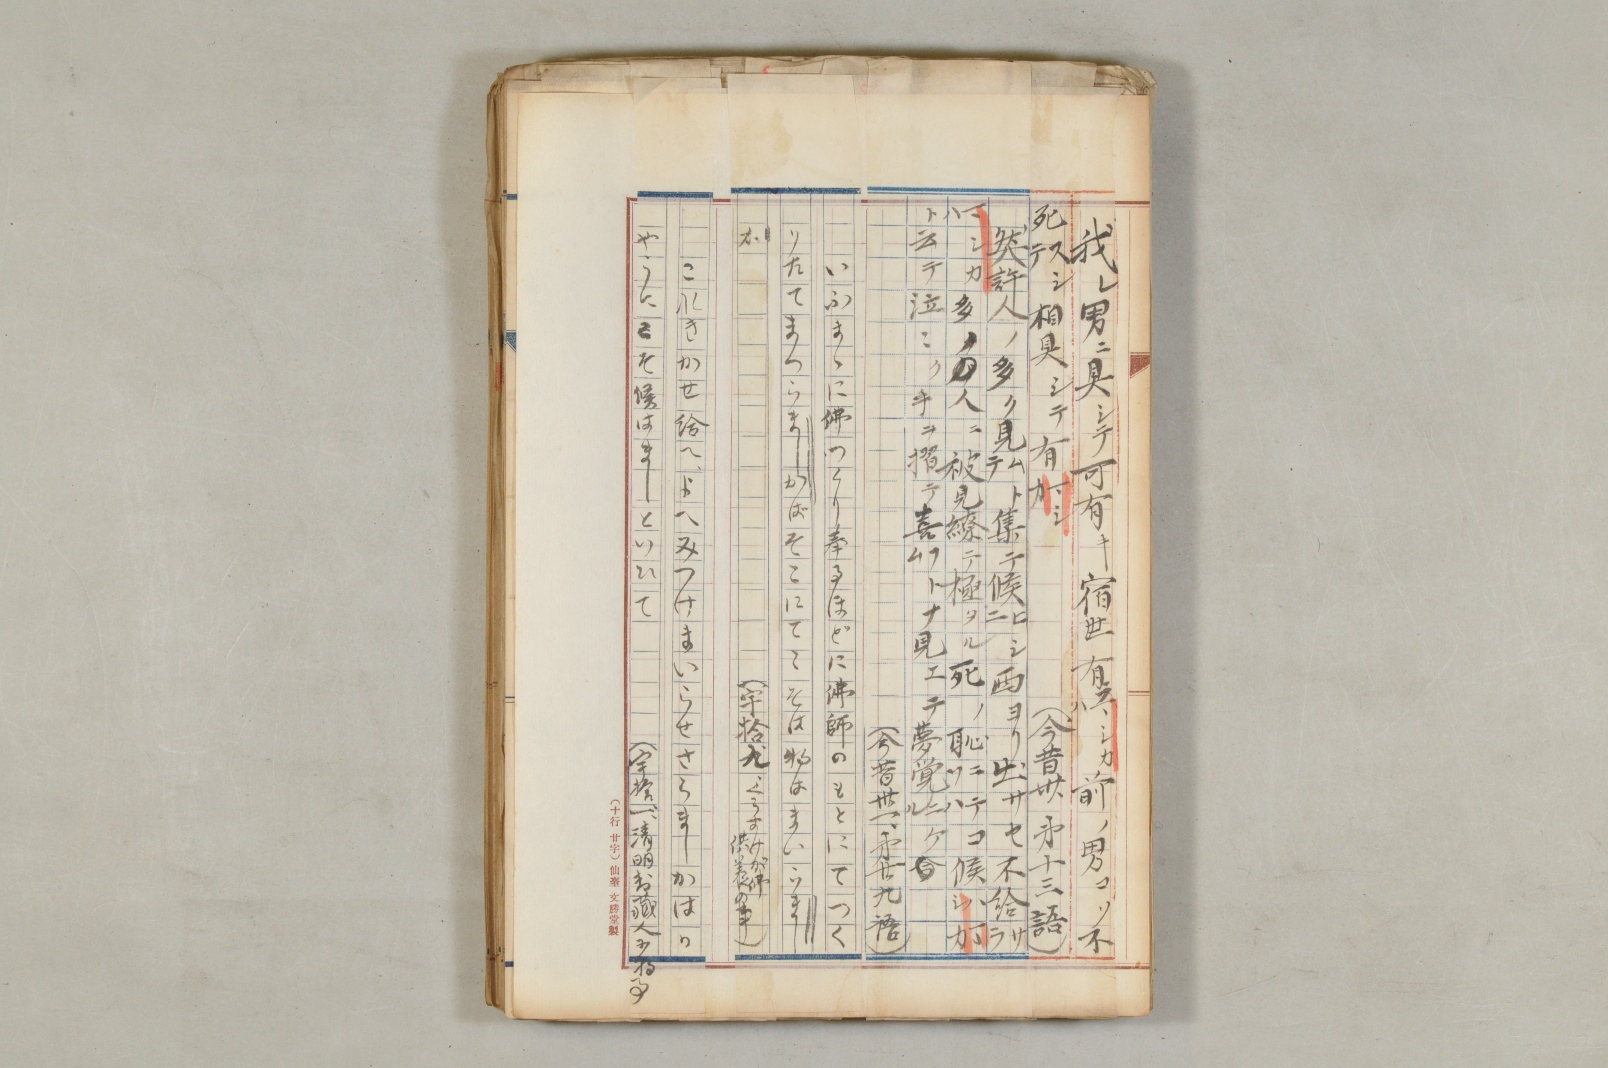 我レ男ニ具シテ可有キ宿世有ラマシカハ前ノ男コソ不
死スシテ相具シテ有ラマシカ
(今昔卅、第十三語)
然許人ノ多ク見ムトテ集テ候ヒシニ西ヨリ出サセ不給サラ
マシカハ多ノ人ニ被見繚テ極タル死ノ恥ニテコソ候ハマシカ
ト云テ泣ミクキヲ摺テ喜ムフトナ見エテ夢覚ニケル今
(今昔卅一、第廿九語)
いふまゝに佛つくり奉るほどに佛師のもとにてつく
りたてまつらましかばそこにてこそは物はまいらまし
か
(宇拾九、くうすけが佛供養の事)
これきかせ給へ、よべみつけまいらせざらましかばか
やうにこそ候はましといひて
(宇拾二、清明封蔵人少将事
(十行 廿字) 仙臺 文勝堂製